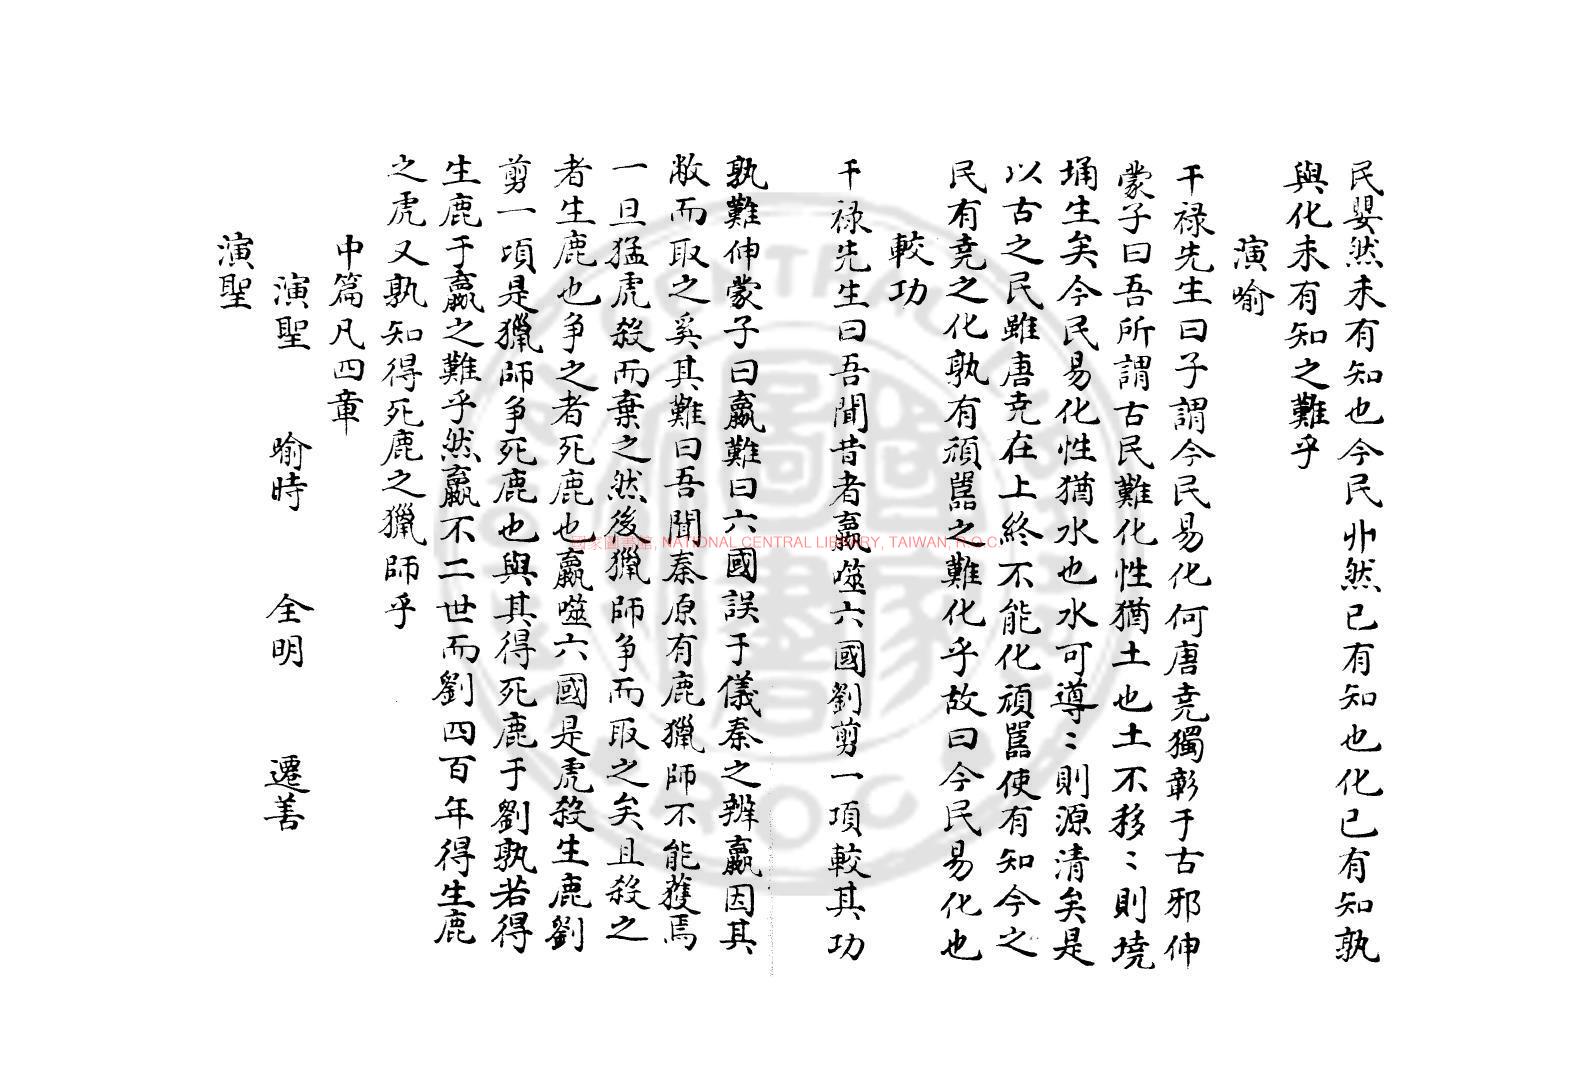 民嬰然未有知也今民丱然已有知也化已有知孰
與化未有知之難乎
演喻
干祿先生曰子謂今民易化何唐堯獨彰于古邪伸
蒙子曰吾所謂古民難化性猶土也土不移〻則墝
埇生矣今民易化性猶水也水可導〻則源清矣是
以古之民雖唐堯在上終不能化頑嚚使有知今之
民有堯之化孰有頑嚚之難化乎故曰今民易化也
較功
干祿先生曰吾聞昔者嬴噬六國劉剪一項較其功
孰難伸蒙子曰嬴難曰六國誤于儀秦之辨嬴因其
敝而取之奚其難曰吾聞秦原有鹿獵師不能獲焉
一旦猛虎殺而棄之然後獵師爭而取之矣且殺之
者生鹿也爭之者死鹿也嬴噬六國是虎殺生鹿劉
剪一項是獵師爭死鹿也與其得死鹿于劉孰若得
生鹿于嬴之難乎然嬴不二世而劉四百年得生鹿
之虎又孰知得死鹿之獵師乎
中篇凡四章
演聖 喻時 全明 遷善
演聖
國家圖書館, NATIONAL CENTRAL LIBRARY, TAIWAN, R.O.C.